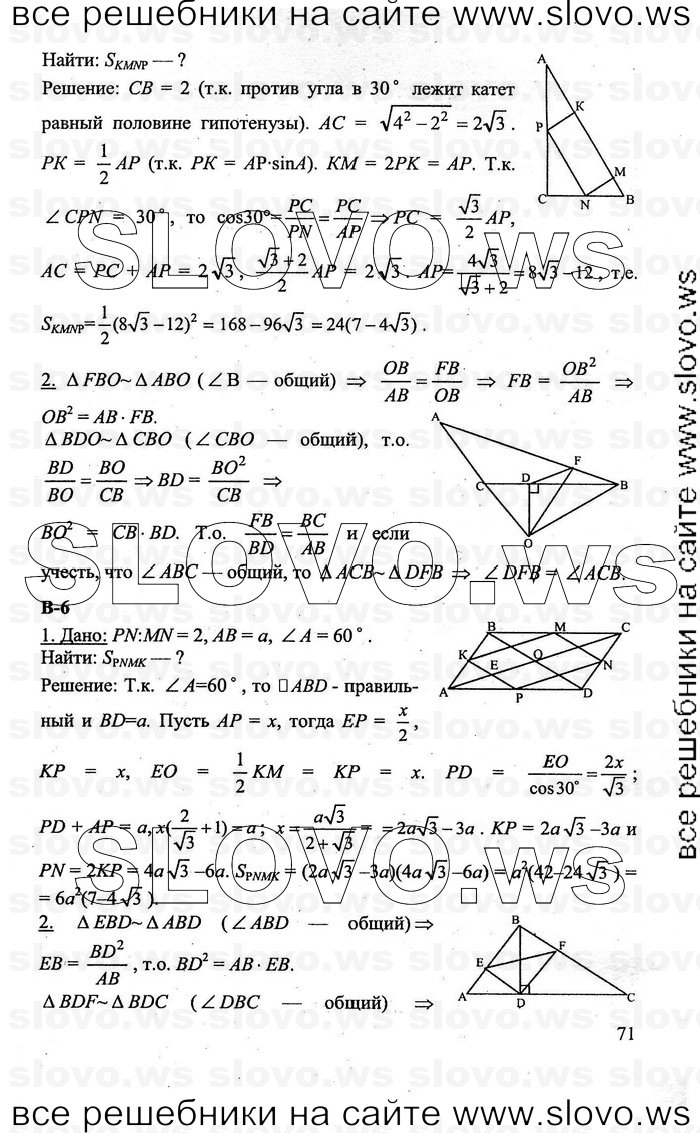 все решебники на сайте www.slovo.ws
Найти: S_KMNP — ?
Решение: CB = 2 (т.к. против угла в 30° лежит катет
равный половине гипотенузы). AC = √(4² – 2²) = 2√3 .
PK = 1/2 AP (т.к. PK = AP·sinA). KM = 2PK = AP. Т.к.
∠CPN = 30°, то cos30°= PC/PN = PC/AP ⇒ PC = √3/2 AP,
AC = PC + AP = 2√3 , (√3+2)/2 AP = 2√3 . AP= 4√3/(√3+2) = 8√3 –12 , т.е.
S_KMNP= 1/2 (8√3 –12)² = 168 – 96√3 = 24(7 – 4√3) .
2. Δ FBO~ Δ ABO (∠B — общий) ⇒ OB/AB = FB/OB ⇒ FB = OB²/AB ⇒
OB² = AB · FB.
Δ BDO~ Δ CBO (∠CBO — общий), т.о.
BD/BO = BO/CB ⇒ BD = BO²/CB ⇒
BO² = CB · BD. Т.о. FB/BD = BC/AB и если
учесть, что ∠ABC — общий, то Δ ACB~ Δ DFB ⇒ ∠DFB = ∠ACB.
A
K
P
M
C
N
B
A
F
C
D
B
O
В-6
1. Дано: PN:MN = 2, AB = a, ∠A = 60° .
Найти: S_PNMK — ?
Решение: Т.к. ∠A=60°, то □ABD - правиль-
ный и BD=a. Пусть AP = x, тогда EP = x/2 ,
KP = x, EO = 1/2 KM = KP = x. PD = EO/cos30° = 2x/√3 ;
PD + AP = a, x(2/√3 +1) = a ; x = a√3/(2+√3) = = 2a√3 – 3a . KP = 2a√3 –3a и
PN = 2KP = 4a√3 –6a. S_PNMK = (2a√3 –3a)(4a√3 –6a) = a²(42–24√3 ) =
= 6a²(7–4√3 ).
B
M
C
K
E
O
N
A
P
D
2. Δ EBD~ Δ ABD (∠ABD — общий) ⇒
EB = BD²/AB , т.о. BD² = AB · EB.
Δ BDF~ Δ BDC (∠DBC — общий) ⇒
B
F
E
A
D
C
71
SLOVO.ws
SLOVO.ws
SLOVO.ws
все решебники на сайте www.slovo.ws
все решебники на сайте www.slovo.ws